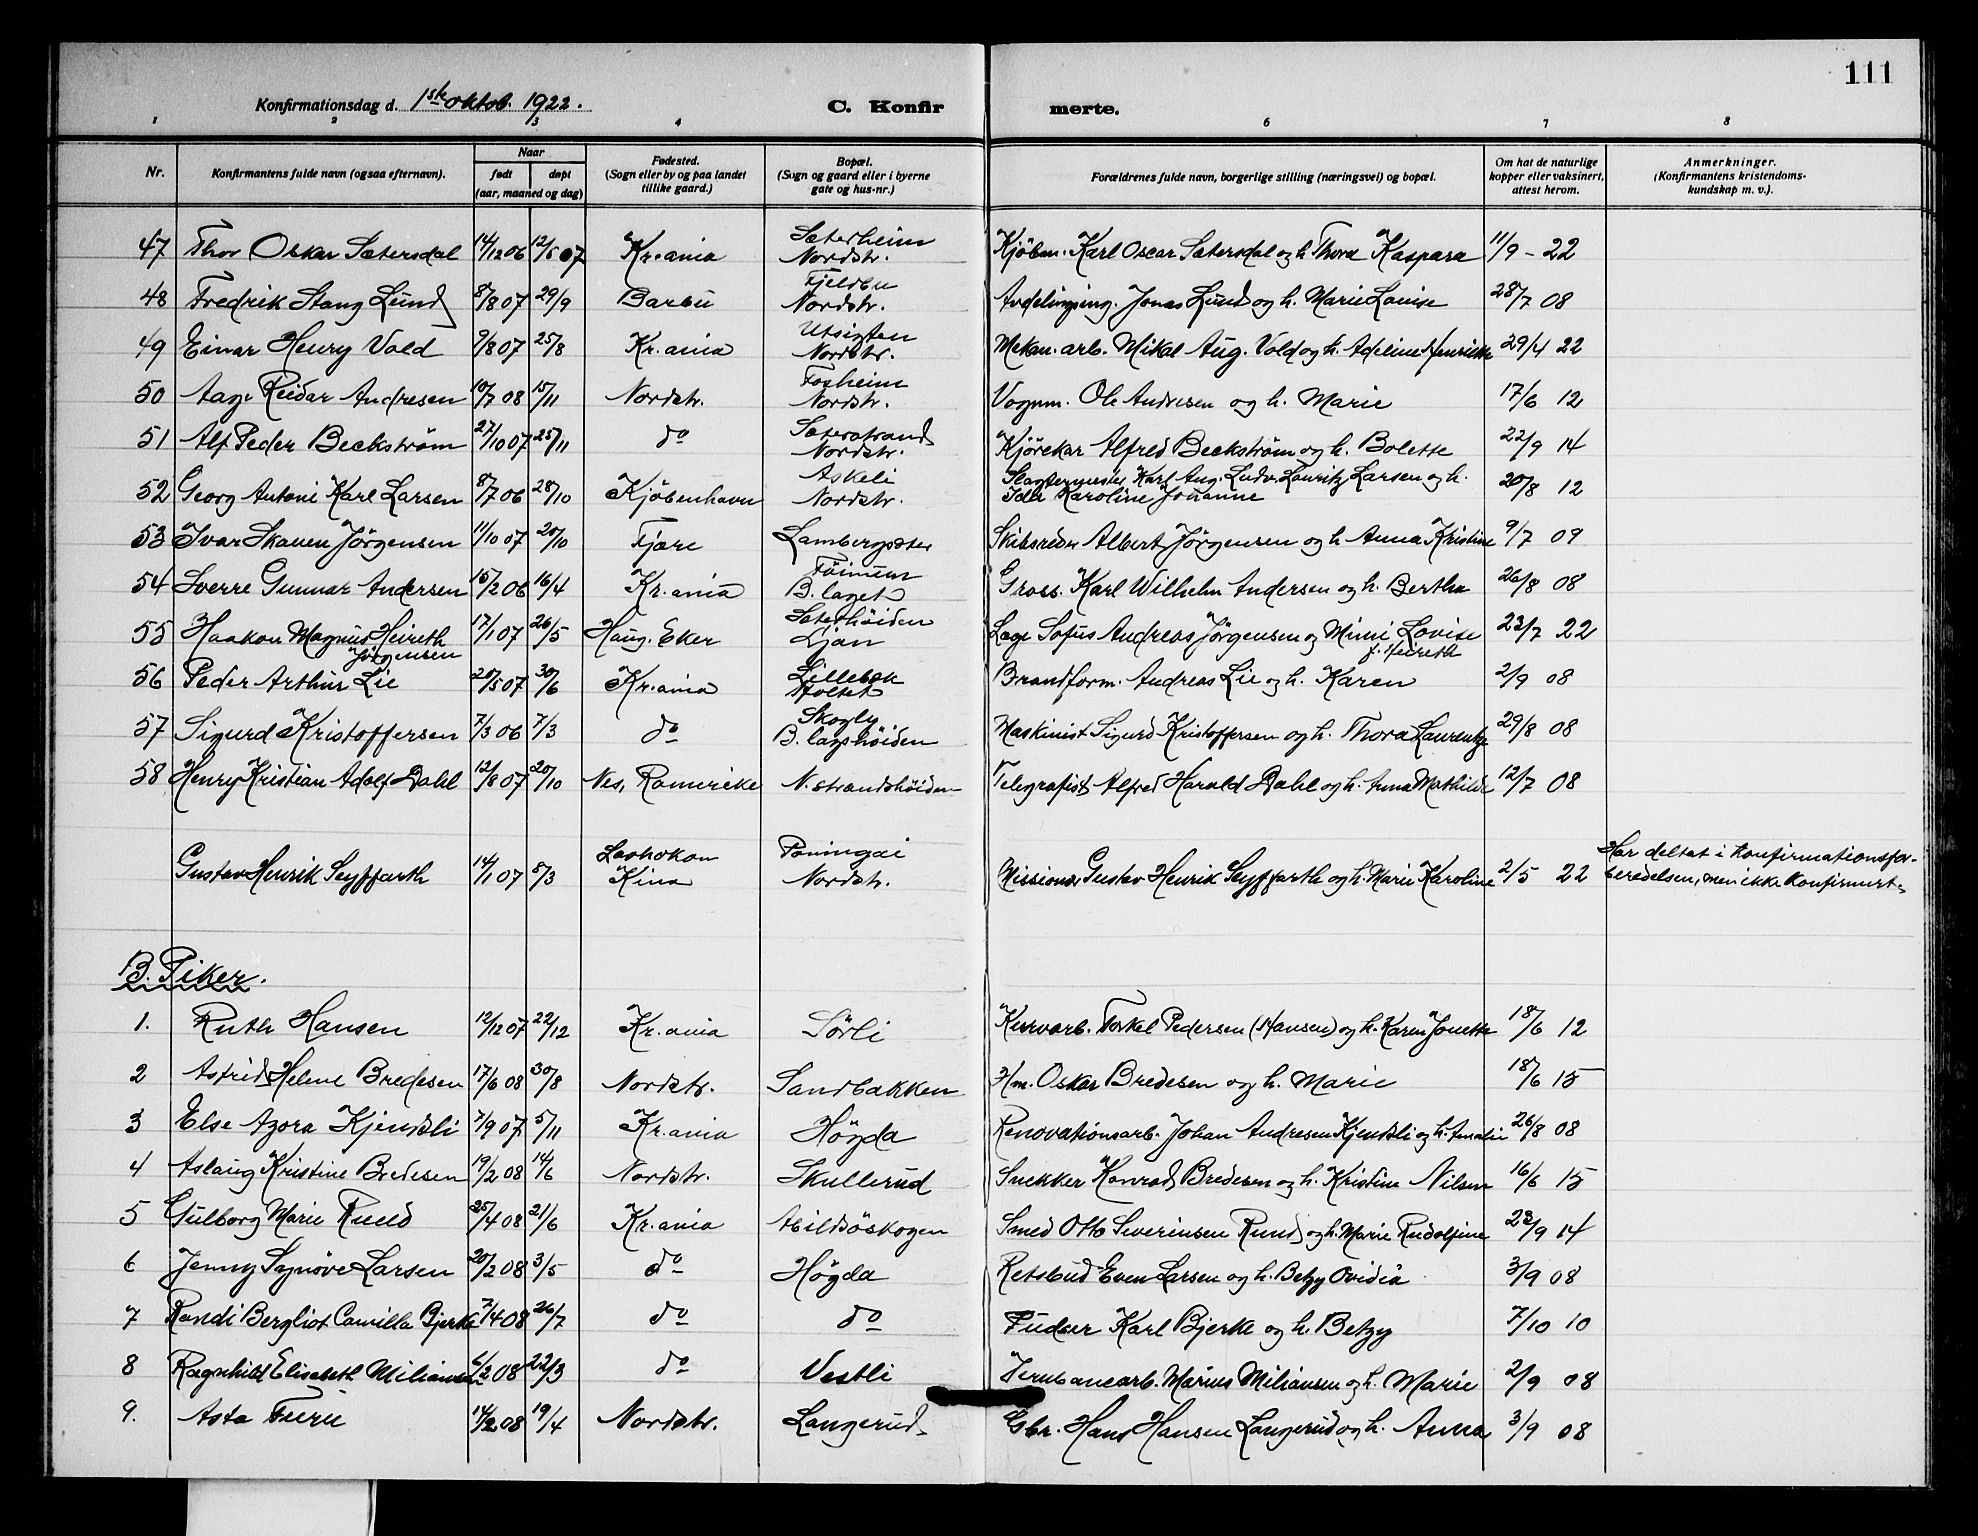 111
Konfirmationsdag d. 1ste oktob. 1922. C. Konfir merte.
1 2 3 4 6 7 8
Nr. Konfirmantens fulde navn (ogsaa efternavn). Naar født døpt (aar, maaned og dag) Fødested. (Sogn eller by og paa landet tillike gaard.) Bopæl. (Sogn og gaard eller i byerne gate og hus-nr.) Forældrenes fulde navn, borgerlige stilling (næringsvei) og bopæl. Om hat de naturlige kopper eller vaksinert, attest herom. Anmerkninger. (Konfirmantens kristendoms-kundskap m. v.).
47 Thor Oskar Sætersdal 14/12 06 12/5 07 Kr.ania Sæterheim Nordstr. Kjøbm. Karl Oscar Sætersdal og h. Thora Kaspara 11/9 - 22
48 Fredrik Stang Lund 8/8 07 29/9 Barbu Fjeldbu Nordstr. Avdelingsing. Jonas Lund og h. Marie Louise 28/7 08
49 Einar Henry Vold 9/8 07 25/8 Kr.ania Utsigten Nordstr. Mekan. arb. Mikal Aug. Vold og h. Adeline Henrikke 29/4 22
50 Aage Reidar Andresen 10/7 08 15/11 Nordstr. Forheim Nordstr. Vognm. Ole Andresen og h. Marie 17/6 12
51 Alf Peder Beckstrøm 27/10 07 25/11 do Sæterstrand Nordstr. Kjørekar Alfred Beckstrøm og h. Bolette 22/9 14
52 Georg Antoni Karl Larsen 8/7 06 28/10 Kjøbenhavn Askeli Nordstr. Slagtermester Karl Aug. Ludv. Lauritz Larsen og h. Ida Karoline Johanne 20/8 12
53 Ivar Skauen Jörgensen 11/10 07 20/10 Fjære Lambergsæter Skibsreder Albert Jörgensen og h. Anna Kristine 9/7 09
54 Sverre Gunnar Andersen 15/2 06 16/4 Kr.ania B. laget Gross. Karl Wilhelm Andersen og h. Bertha 26/8 08
55 Haakon Magnus Heireth Jörgensen 17/1 07 26/5 Haug. Eker Sæterhöiden Ljan Lage Sofus Andreas Jörgensen og Mimi Lovise f. Heireth 23/7 22
56 Peder Arthur Lie 20/5 07 30/6 Kr.ania Lillebæk Brandform. Andreas Lie og h. Karen 2/9 08
57 Sigurd Kristoffersen 7/3 06 7/3 do Skogly B. lagshöiden Maskinist Sigurd Kristoffersen og h. Thora Laurentze 29/8 08
58 Henry Kristian Adolf Dahl 12/8 07 20/10 Nes, Romerike N. strandshöiden Telegrafist Alfred Harald Dahl og h. Anna Mathilde 12/7 08
Gustav Henrik Seyffarth 14/1 07 8/3 Laohokou Kina Nordstr. Missionær Gustav Henrik Seyffarth og h. Marie Karoline 2/5 22 Har deltat i Konfirmationsfor-
beredelsen, men ikke konfirmert.
B. Piker.
1. Ruth Hansen 12/12 07 22/12 Kr.ania Sörli Kurvarb. Torkel Pedersen (Hansen) og h. Karen Jonette 18/6 12
2 Astrid Helene Bredesen 17/6 08 30/8 Nordstr. Sandbakken Hm. Oskar Bredesen og h. Marie 18/6 15
3 Else Azora Kjendsli 7/9 07 5/11 Kr.ania Högda Renovationsarb. Johan Andresen Kjendsli og h. Amalie 26/8 08
4 Aslaug Kristine Bredesen 19/2 08 14/6 Nordstr. Skullerud Snekker Konrad Bredesen og h. Kristine Nilsen 16/6 15
5 Gulborg Marie Ruud 25/4 08 21/6 Kr.ania Abildsöskogen Smed Otto Severinsen Ruud og h. Marie Rudolfine 23/9 14
6 Jenny Synöve Larsen 20/2 08 3/5 do Högda Retsbud Even Larsen og h. Betzy Ovidia 3/9 08
7 Randi Bergliot Camilla Bjerke 7/4 08 26/7 do do Pudser Karl Bjerke og h. Betzy 7/10 10
8 Ragnhild Elisabeth Miliansen 6/2 08 22/3 do Vestli Jernbanearb. Marius Miliansen og h. Marie 2/9 08
9. Asta Furu 14/2 08 19/4 Nordstr. Langerud Gbr. Hans Hansen Langerud og h. Anna 3/9 08